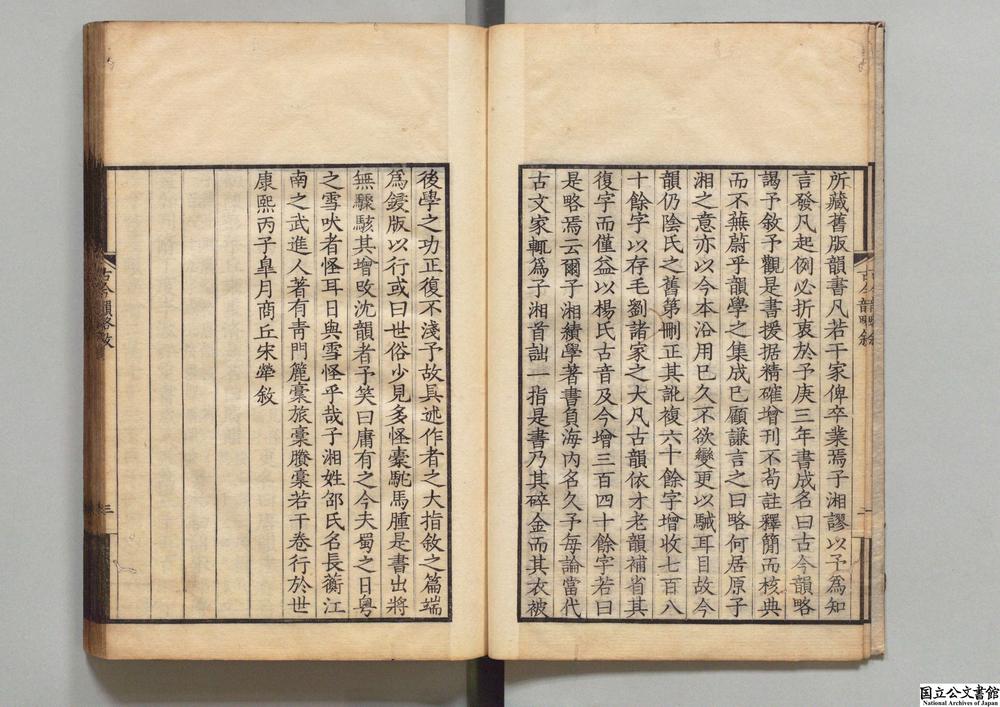 所藏舊版韻書凡若干家俾卒業焉子湘謬以予為知
言發凡起例必折衷於予庚三年書成名曰古今韻略
謁予敘予觀是書援据精確增刊不苟註釋簡而核典
而不蕪蔚乎韻學之集成已顧謙言之曰略何居原子
湘之意亦以今本沿用已久不欲變更以駴耳目故今
韻仍陰氏之舊第刪正其訛複六十餘字增收七百八
十餘字以存毛劉諸家之大凡古韻依才老韻補省其
復字而僅益以楊氏古音及今增三百四十餘字若曰
是略焉云爾子湘績學著書負海內名久予每論當代
古文家輒為子湘首詘一指是書乃其碎金而其衣被
古今韻略敘
二
後學之功正復不淺予故具述作者之大指敘之篇端
為鋟版以行或曰世俗少見多怪橐駝馬腫是書出將
無驟駭其增攺沈韻者予笑曰庸有之今夫蜀之日粵
之雪吠者怪耳日與雪怪乎哉子湘姓邵氏名長蘅江
南之武進人著有靑門簏稾旅稾賸稾若干卷行於世
康熙丙子皐月商丘宋犖敘
古今韻略敘
三
国立公文書館
National Archives of Japan